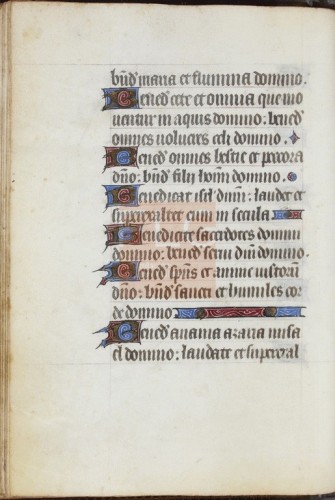 bn̄d maria et flumina domino.
Bened̄ cete et omnia que mo
uentur in aquis domino: bened̄
omnes volucres celi domino.
Bened̄ omnes bestie et pecora
dn̄o: bn̄d filij hoīm domino.
Benedicat isrl dn̄m: laudet et
superexaltet eum in secula
Benedicite sacerdotes domini
domino: bened̄ serui dn̄i domino.
Bened̄ spūs et anime iustorū
dn̄o: bn̄d sancti et humiles cor
de domino
Bened̄ anania azaria misa
el domino: laudate et superexal